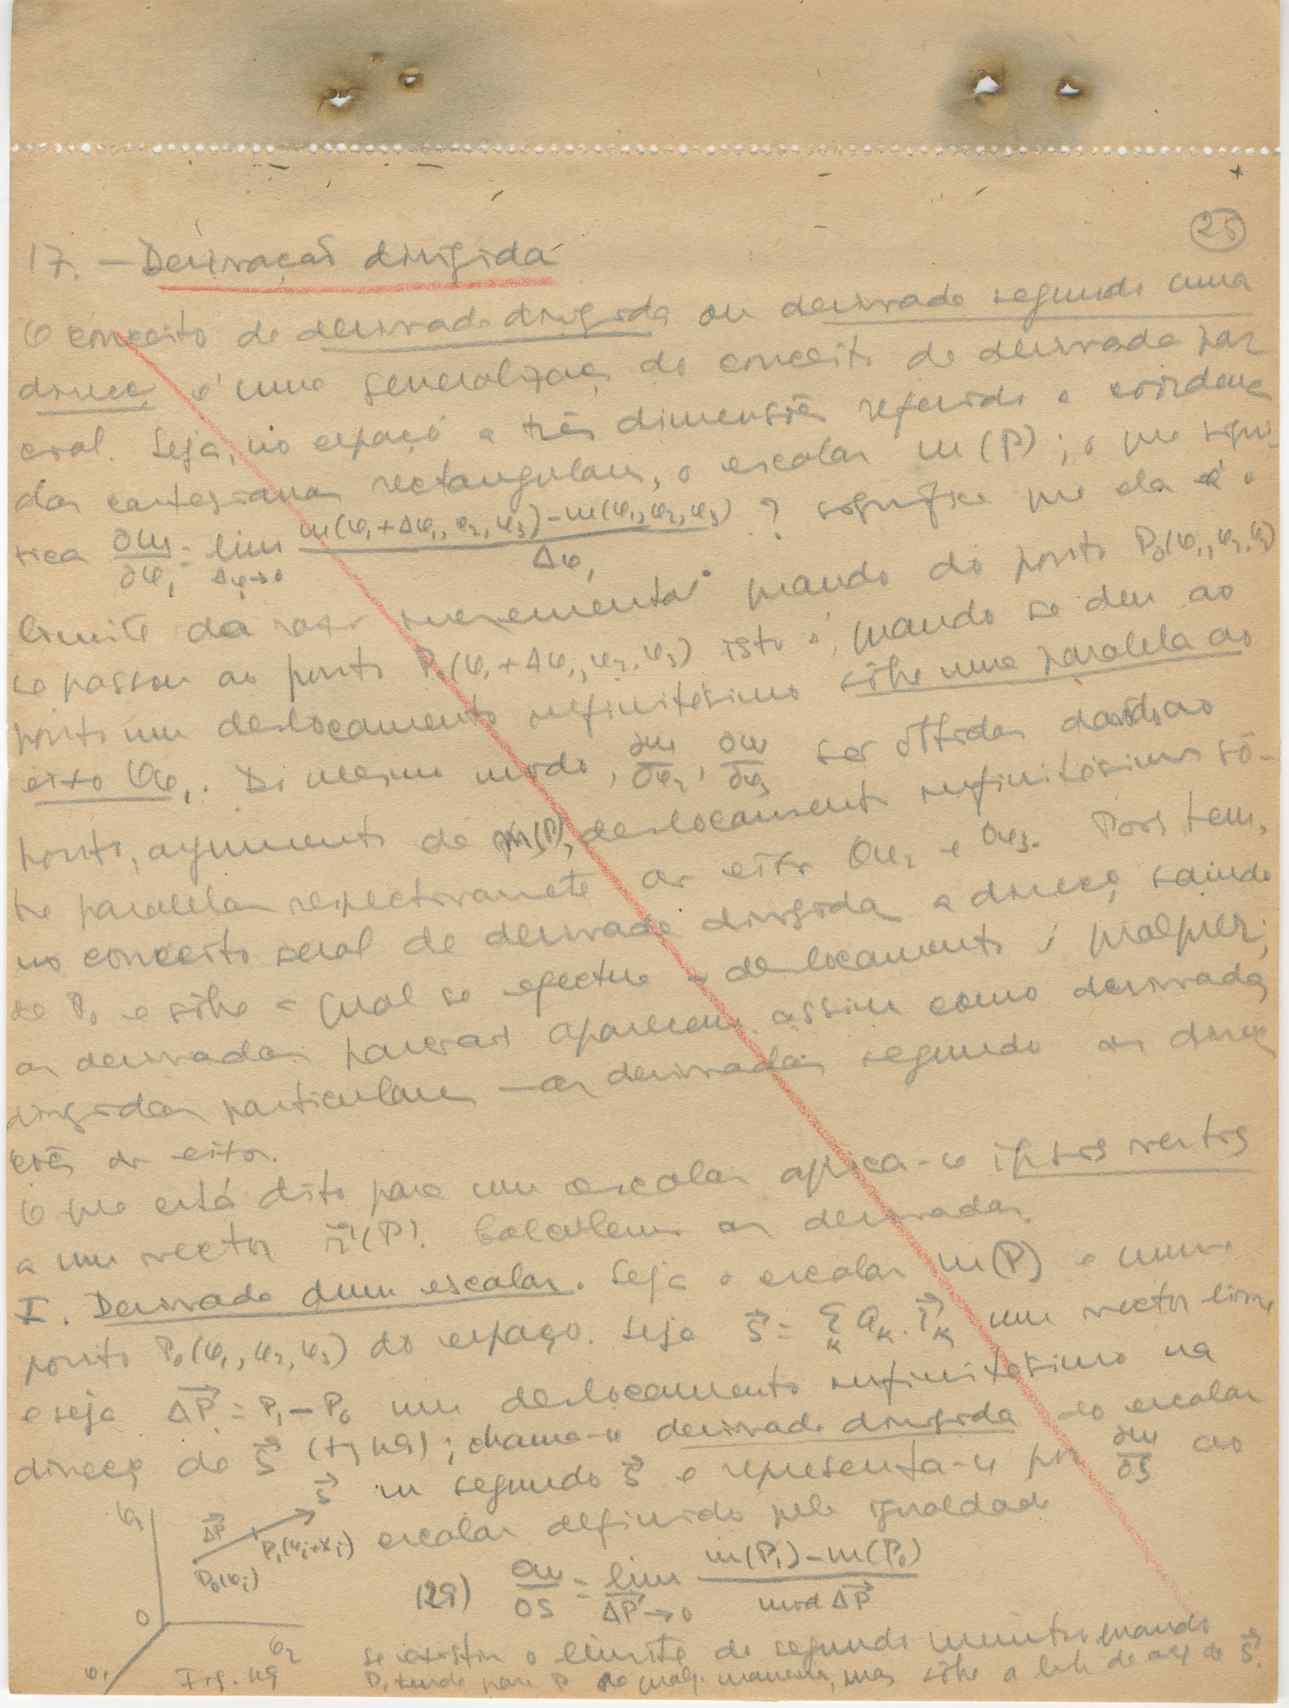 25
17. — Derivação dirigida
O conceito de derivada dirigida ou derivada segundo uma
direcç é uma generalizaç do conceito de derivada par
cial. Seja, no espaço a três dimensões referido a coordena
das cartesianas rectangulares, o escalar m(P); o que signi-
fica ∂m/∂φ₁ = lim Δφ₁→0 m(φ₁+Δφ₁, φ₂, φ₃) − m(φ₁, φ₂, φ₃) / Δφ₁ ? significa que ela é o
limite da razão incremental quando do ponto P₀(φ₁, φ₂, φ₃)
se passou ao ponto P₁(φ₁+Δφ₁, φ₂, φ₃) isto é, quando se deu ao
ponto um deslocamento infinitésimo sôbre uma paralela ao
eixo Oφ₁. Do mesmo modo, ∂m/∂φ₂, ∂m/∂φ₃ são obtidas dando ao
ponto, argumento de m(P), deslocamentos infinitésimos sô-
bre paralelas respectivamente aos eixos Oφ₂ e Oφ₃. Pois bem,
no conceito geral de derivada dirigida a direcç saindo
de P₀ e sôbre a qual se efectua o deslocamento é qualquer;
as derivadas parciais aparecem assim como derivadas
dirigidas particulares — as derivadas segundo as direc
ções dos eixos.
O que está dito para um escalar aplica-se ipsis verbis
a um vector r⃗(P). Calculemos as derivadas.
I. Derivada dum escalar. Seja o escalar m(P) e num
ponto P₀(φ₁, φ₂, φ₃) do espaço. Seja s⃗ = Σₖ aₖ.i⃗ₖ um vector livre
e seja ΔP⃗ = P₁ − P₀ um deslocamento infinitésimo na
direcç de s⃗ (fig 49); chama-se derivada dirigida do escalar
m segundo s⃗ e representa-se por ∂m/∂s ao
escalar definido pela igualdade
(29) ∂m/∂s = lim ΔP⃗→0 m(P₁) − m(P₀) / mod ΔP⃗
se existir o limite do segundo membro quando
P₁ tende para P₀ de qualq. maneira, mas sôbre a linha de acç de s⃗.
φ₃
ΔP⃗
s⃗
P₁(φᵢ+xᵢ)
P₀(φᵢ)
O
φ₂
φ₁
Fig. 49